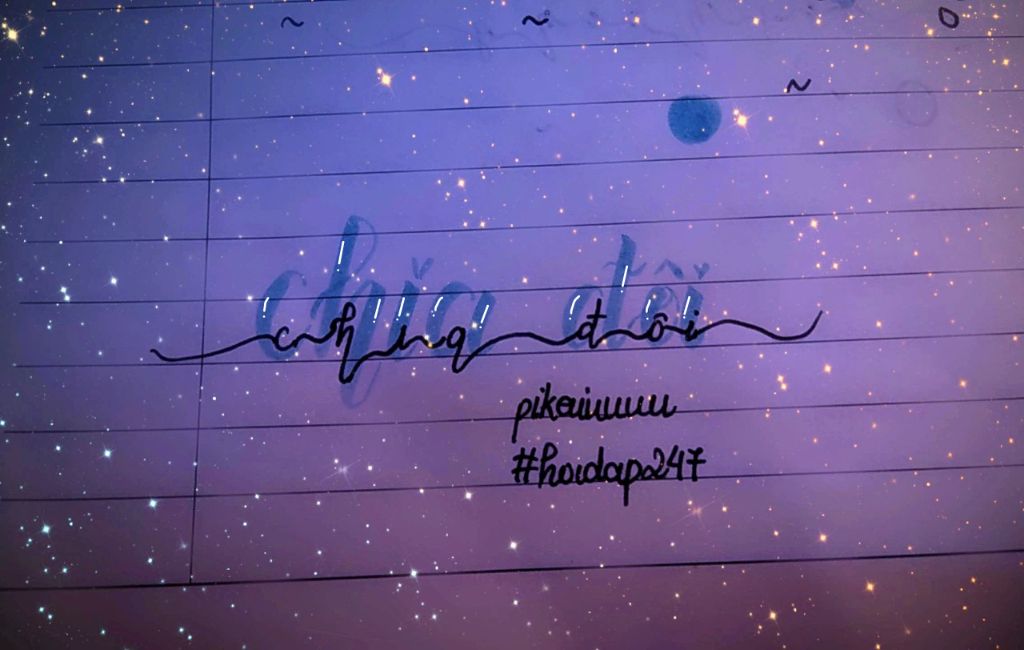 chia đôi
chia đôi
pikaiuuuu
#hoidap247